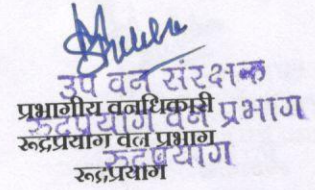 उप वन संरक्षक
प्रभागीय वनधिकारी
रूद्रप्रयाग वन प्रभाग
रूद्रप्रयाग वन प्रभाग
रूद्रप्रयाग
रूद्रप्रयाग